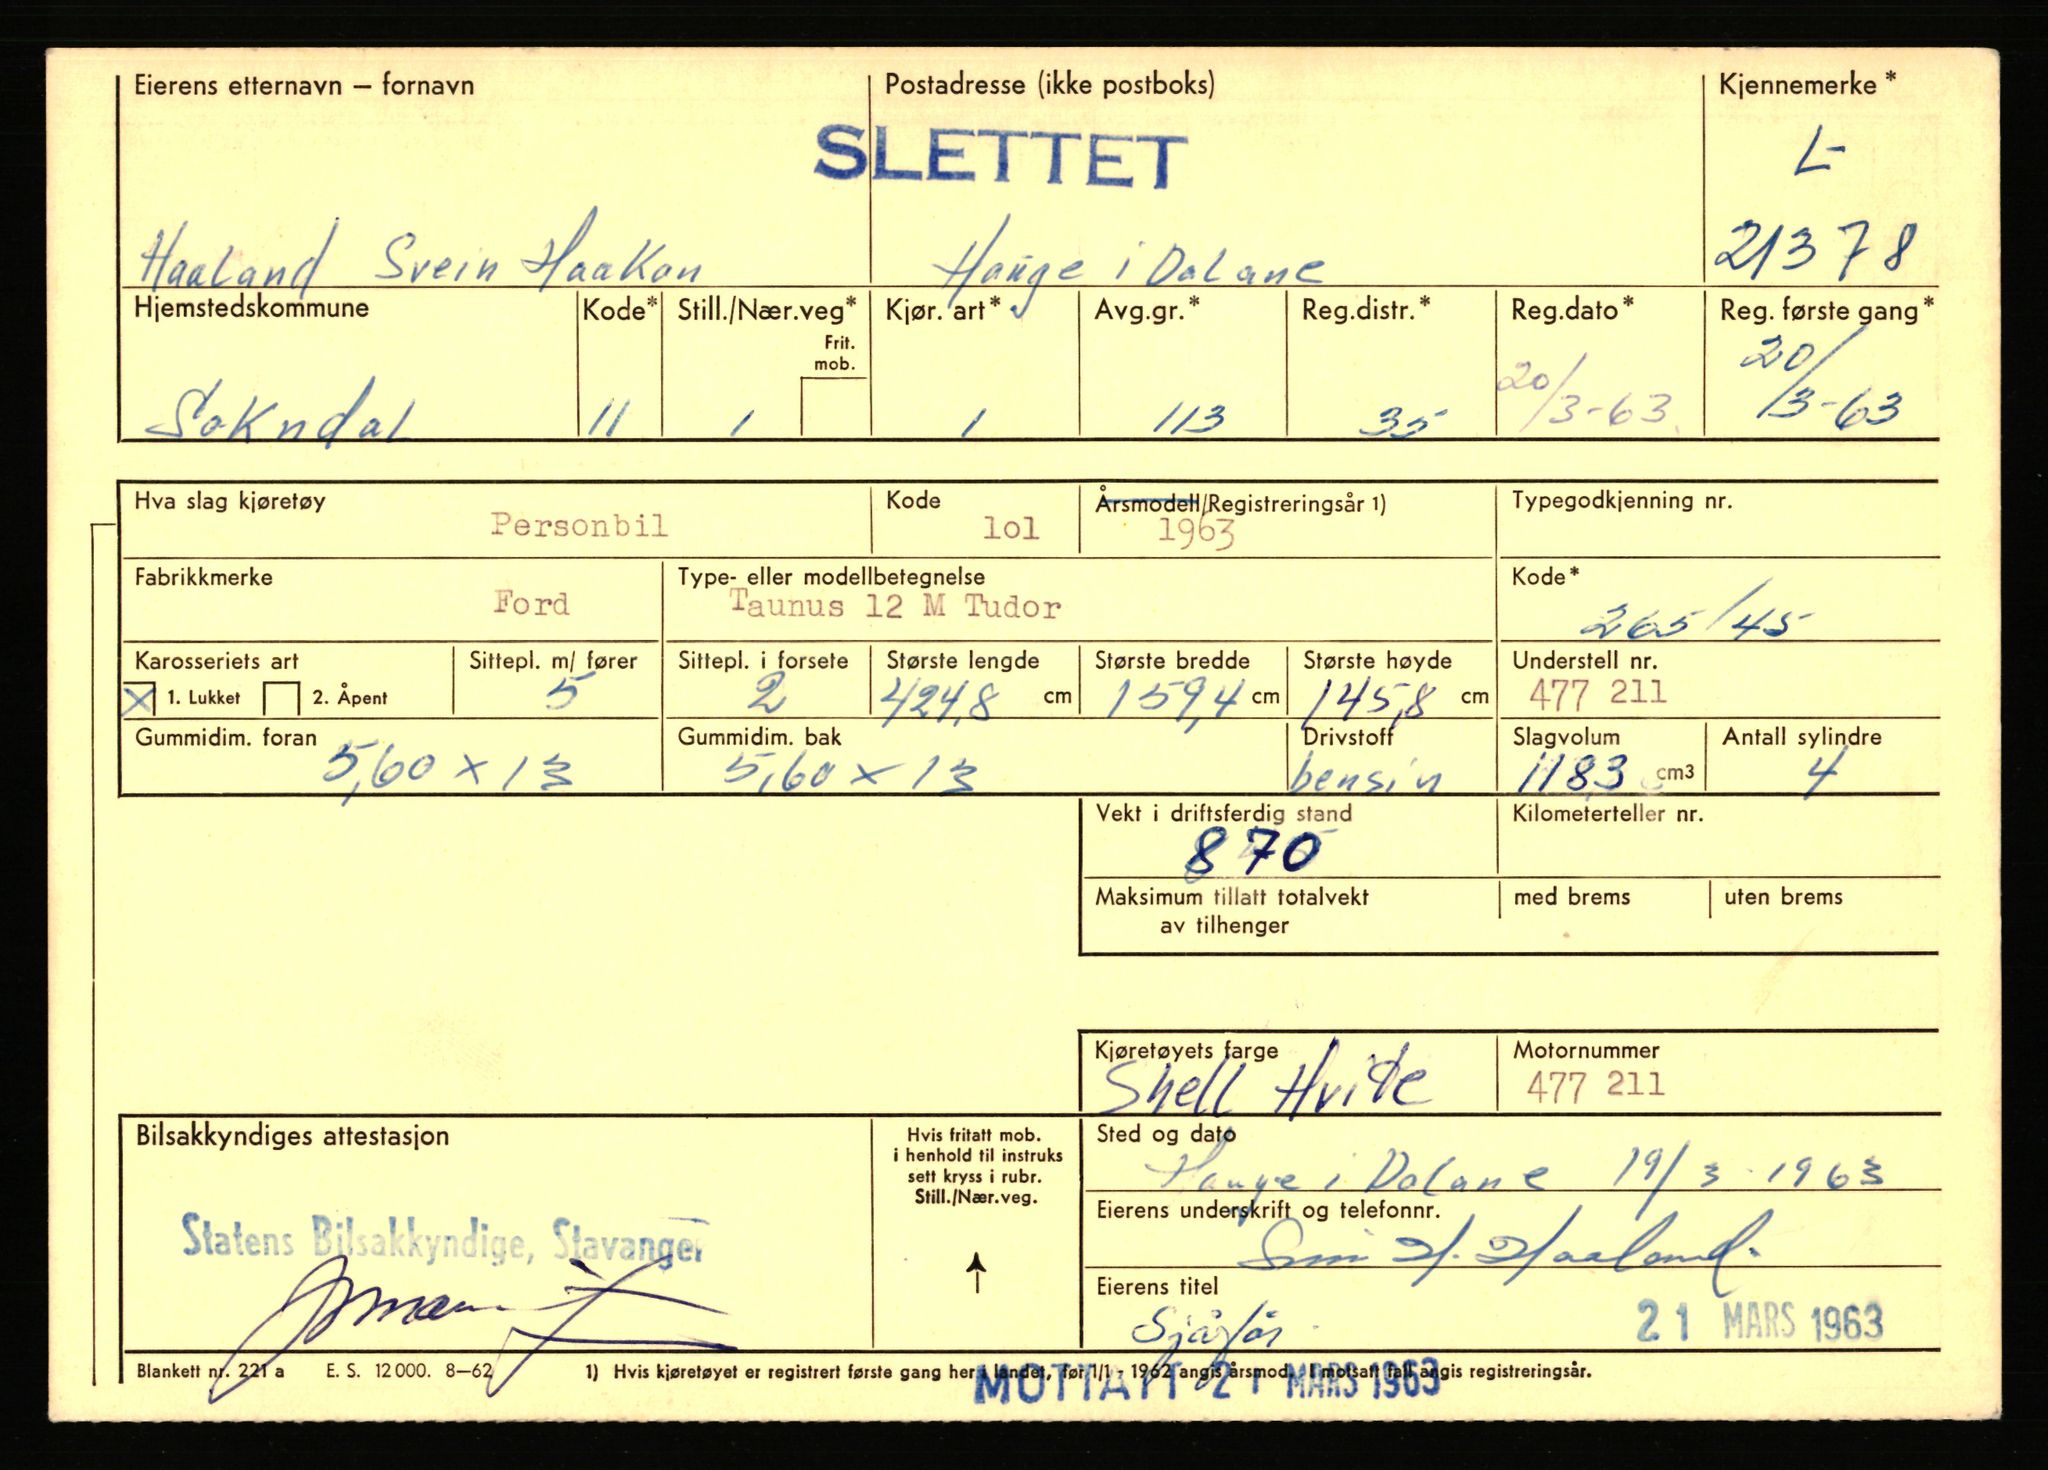 Eierens etternavn – fornavn Postadresse (ikke postboks) Kjennemerke*
SLETTET
L-
Haaland Svein Haakon Hauge i Dalane 21378
Hjemstedskommune Kode* Still./Nær.veg* Kjør. art* Avg.gr.* Reg.distr.* Reg.dato* Reg. første gang*
Frit. mob.
Sokndal 11 1 1 113 35 20/3-63 20/3-63
Hva slag kjøretøy Kode Årsmodell/Registreringsår 1) Typegodkjenning nr.
Personbil 101 1963
Fabrikkmerke Type- eller modellbetegnelse Kode*
Ford Taunus 12 M Tudor 265/45
Karosseriets art Sittepl. m/ fører Sittepl. i forsete Største lengde Største bredde Største høyde Understell nr.
X 1. Lukket 2. Åpent 5 2 424,8 cm 159,4 cm 145,8 cm 477 211
Gummidim. foran Gummidim. bak Drivstoff Slagvolum Antall sylindre
5,60 x 13 5,60 x 13 bensin 1183 cm3 4
Vekt i driftsferdig stand Kilometerteller nr.
870
Maksimum tillatt totalvekt med brems uten brems
av tilhenger
Kjøretøyets farge Motornummer
Shell Hvite 477 211
Bilsakkyndiges attestasjon Hvis fritatt mob. Sted og dato
i henhold til instruks
sett kryss i rubr.
Still./Nær.veg.
Hauge i Dalane 19/3-1963
Eierens underskrift og telefonnr.
Statens Bilsakkyndige, Stavanger
Svein H. Haaland
Eierens titel
21 MARS 1963
Blankett nr. 221 a E. S. 12 000. 8–62 1) Hvis kjøretøyet er registrert første gang her i landet, før 1/1 - 1962 angis årsmod. I motsatt fall angis registreringsår.
MOTTATT 21 MARS 1963